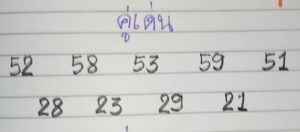 คู่เด่น
52 58 53 59 51
28 23 29 21